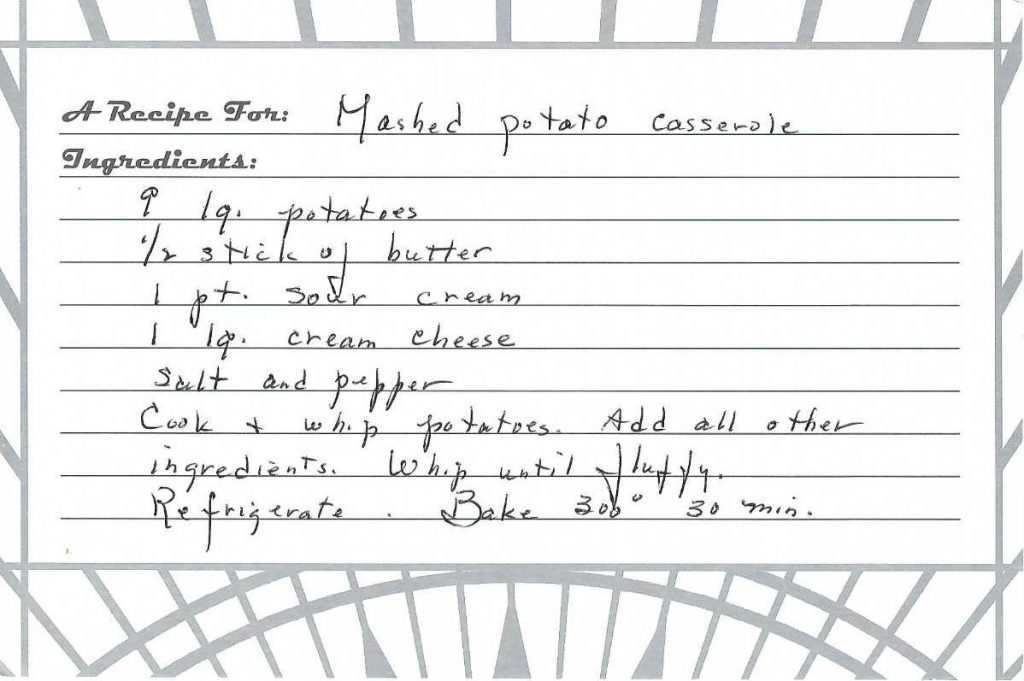 A Recipe For: Mashed potato casserole
Ingredients:
9 lg. potatoes
1/2 stick of butter
1 pt. sour cream
1 lg. cream cheese
Salt and pepper
Cook + whip potatoes. Add all other
ingredients. Whip until fluffy.
Refrigerate. Bake 300° 30 min.